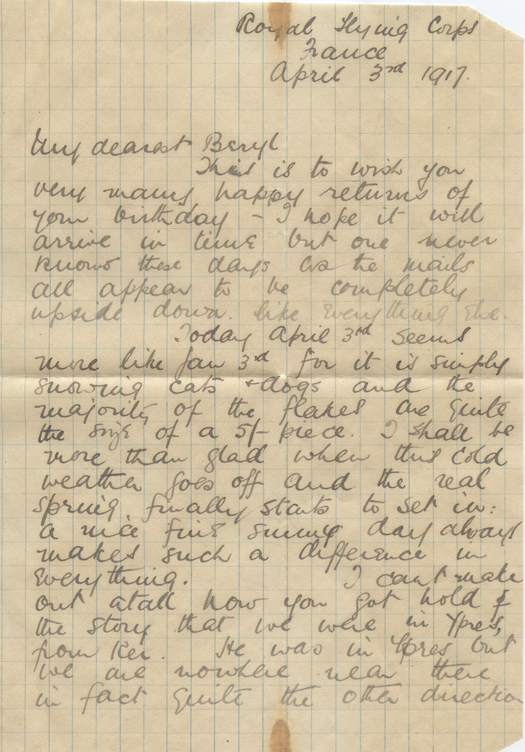 Royal Flying Corps
France
April 3rd 1917.
My dearest Beryl
This is to wish you
very many happy returns of
your birthday - I hope it will
arrive in time but one never
knows these days as the mails
all appear to be completely
upside down. like everything else.
Today April 3rd seems
more like Jan 3rd for it is simply
snowing cats & dogs and the
majority of the flakes are quite
the size of a 5/ piece. I shall be
more than glad when this cold
weather goes off and the real
spring finally starts to set in:
a nice fine sunny day always
makes such a difference in
everything. I can't make
out atall how you got hold of
the story that we were in Ypres,
from Ker. He was in Ypres but
we are nowhere near there
in fact quite the other direction